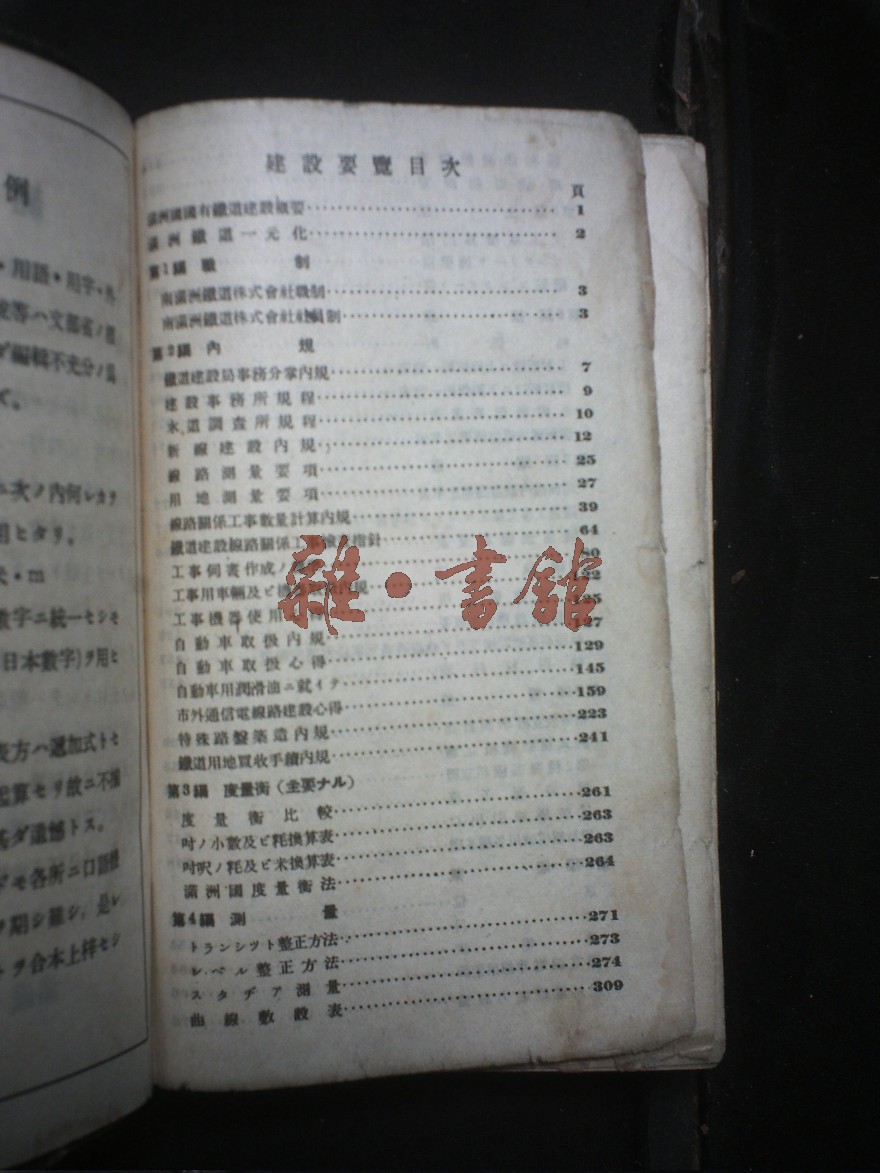 建設要覽目次
頁
滿洲國國有鐵道建設概要 1
滿洲鐵道一元化 2
第1編 職制
南滿洲鐵道株式會社職制 3
南滿洲鐵道株式會社社員制 3
第2編 內規
鐵道建設局事務分掌內規 7
建設事務所規程 9
水道調查所規程 10
新線建設內規 12
線路測量要項 25
用地測量要項 27
線路關係工事數量計算內規 39
鐵道建設線路關係工事 指針 64
工事伺書作成ノ 80
工事用車輛及ビ 內規 122
工事機器使用 125
自動車取扱內規 127
自動車取扱心得 129
自動車用潤滑油ニ就イテ 145
市外通信電線路建設心得 159
特殊路盤築造內規 223
鐵道用地買收手續內規 241
第3編 度量衡(主要ナル)
度量衡比較 261
吋ノ小數及ビ粍換算表 263
吋呎ノ粍及ビ米換算表 263
滿洲國度量衡法 264
第4編 測量
トランシツト整正方法 271
レベル整正方法 273
スタヂア測量 274
曲線敷設表 309
雜·書館
例
・用語・用字・外
等ハ文部省ノ
編輯不充分ノ爲
ズ。
次ノ內何レカヲ
用ヒタリ。
・m
數字ニ統一セシモ
日本數字)ヲ用ヒ
方ハ遞加式トセ
算セリ故ニ不
甚ダ遺憾トス。
ドモ各所ニ口語
期シ難シ,是レ
ヲ合本上梓セシ